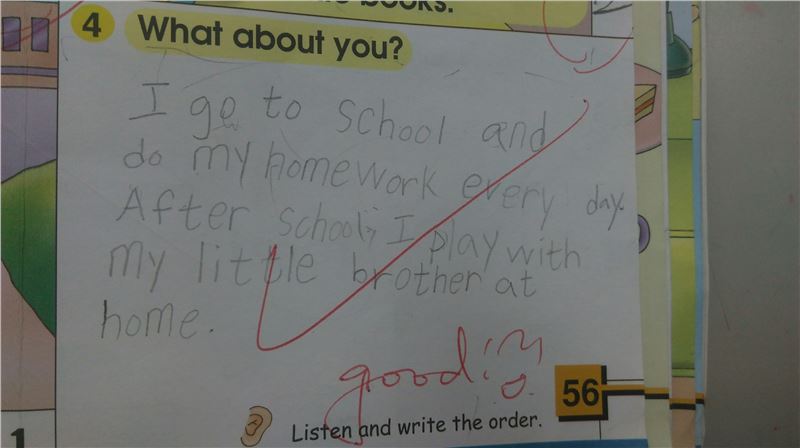 books.
4 What about you?
I go to school and
do my homework every day.
After school, I play with
my little brother at
home.
good!
56
Listen and write the order.
1